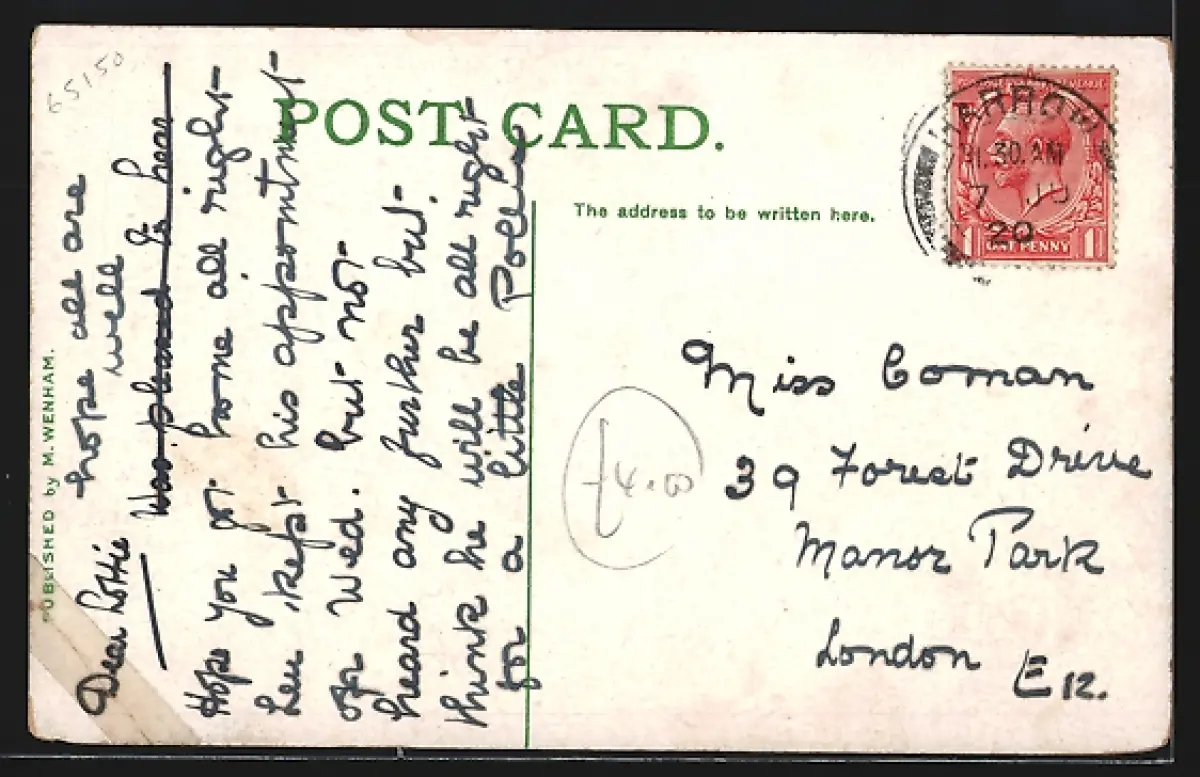 65150
POST CARD.
The address to be written here.
PUBLISHED by M. WENHAM.
HARROW
11.30. AM
7
20
ONE PENNY
1 1
hope all are
well
Dear Lottie
Was pleased to hear
Hope you got home all right
Len kept his appointment
of Wed. but not
heard any further but
think he will be all right
for a little Polly
£4.00
Miss Coman
39 Forest Drive
Manor Park
London
E 12.